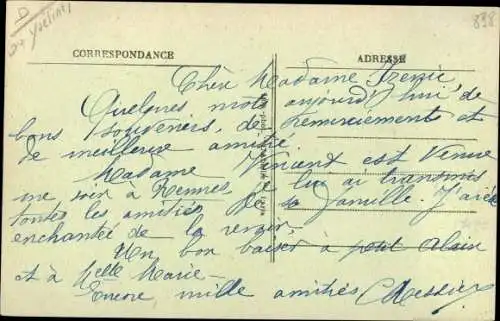 D
898
CORRESPONDANCE
ADRESSE
Chère Madame
Quelques mots aujourd'hui de
bons souvenirs, de remerciements et
de meilleure amitié
Madame Vincent est venue
un soir à Rennes je lui ai transmis
toutes les amitiés de sa famille. J'ai été
enchantée de la revoir.
Un bon baiser à petit Alain
et à Melle Marie-
Encore mille amitiés